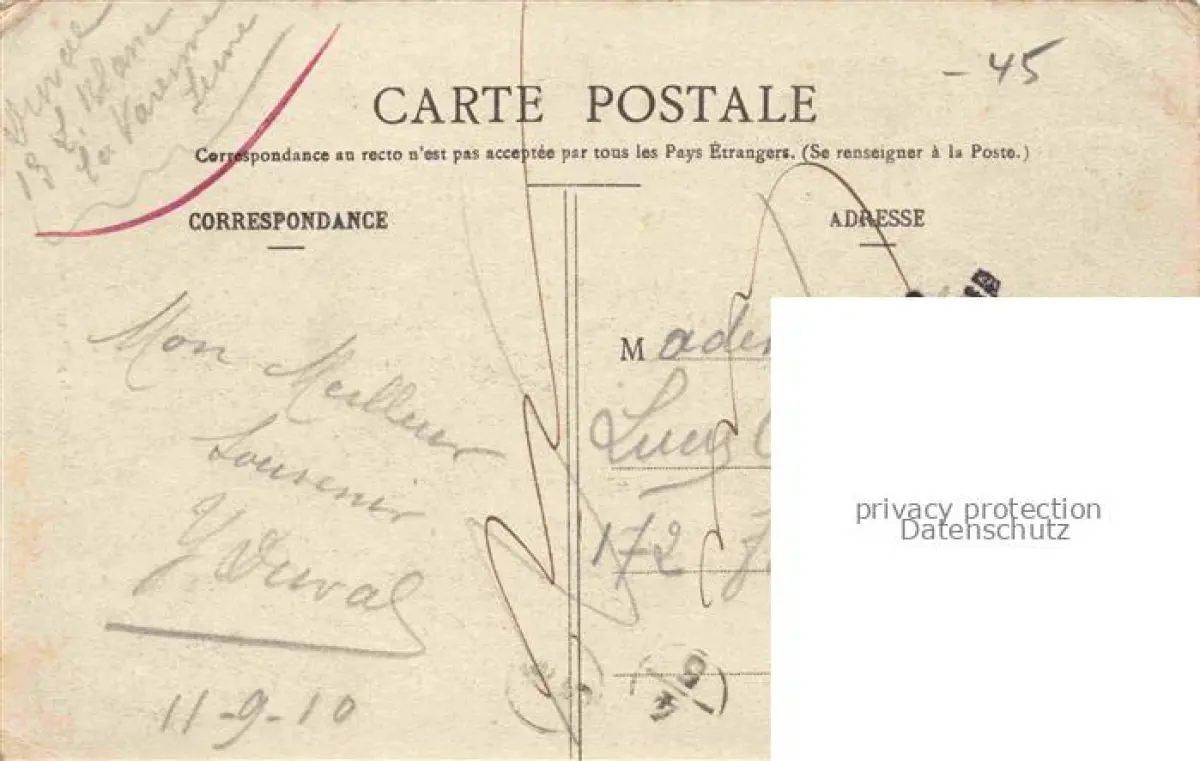 Duval
13 R. Blanc
La Varenne
Seine
- 45
CARTE POSTALE
Correspondance au recto n'est pas acceptée par tous les Pays Étrangers. (Se renseigner à la Poste.)
CORRESPONDANCE
Mon Meilleur
Souvenir
Y Duval
11-9-10
ADRESSE
M
Lucy
172
privacy protection
Datenschutz